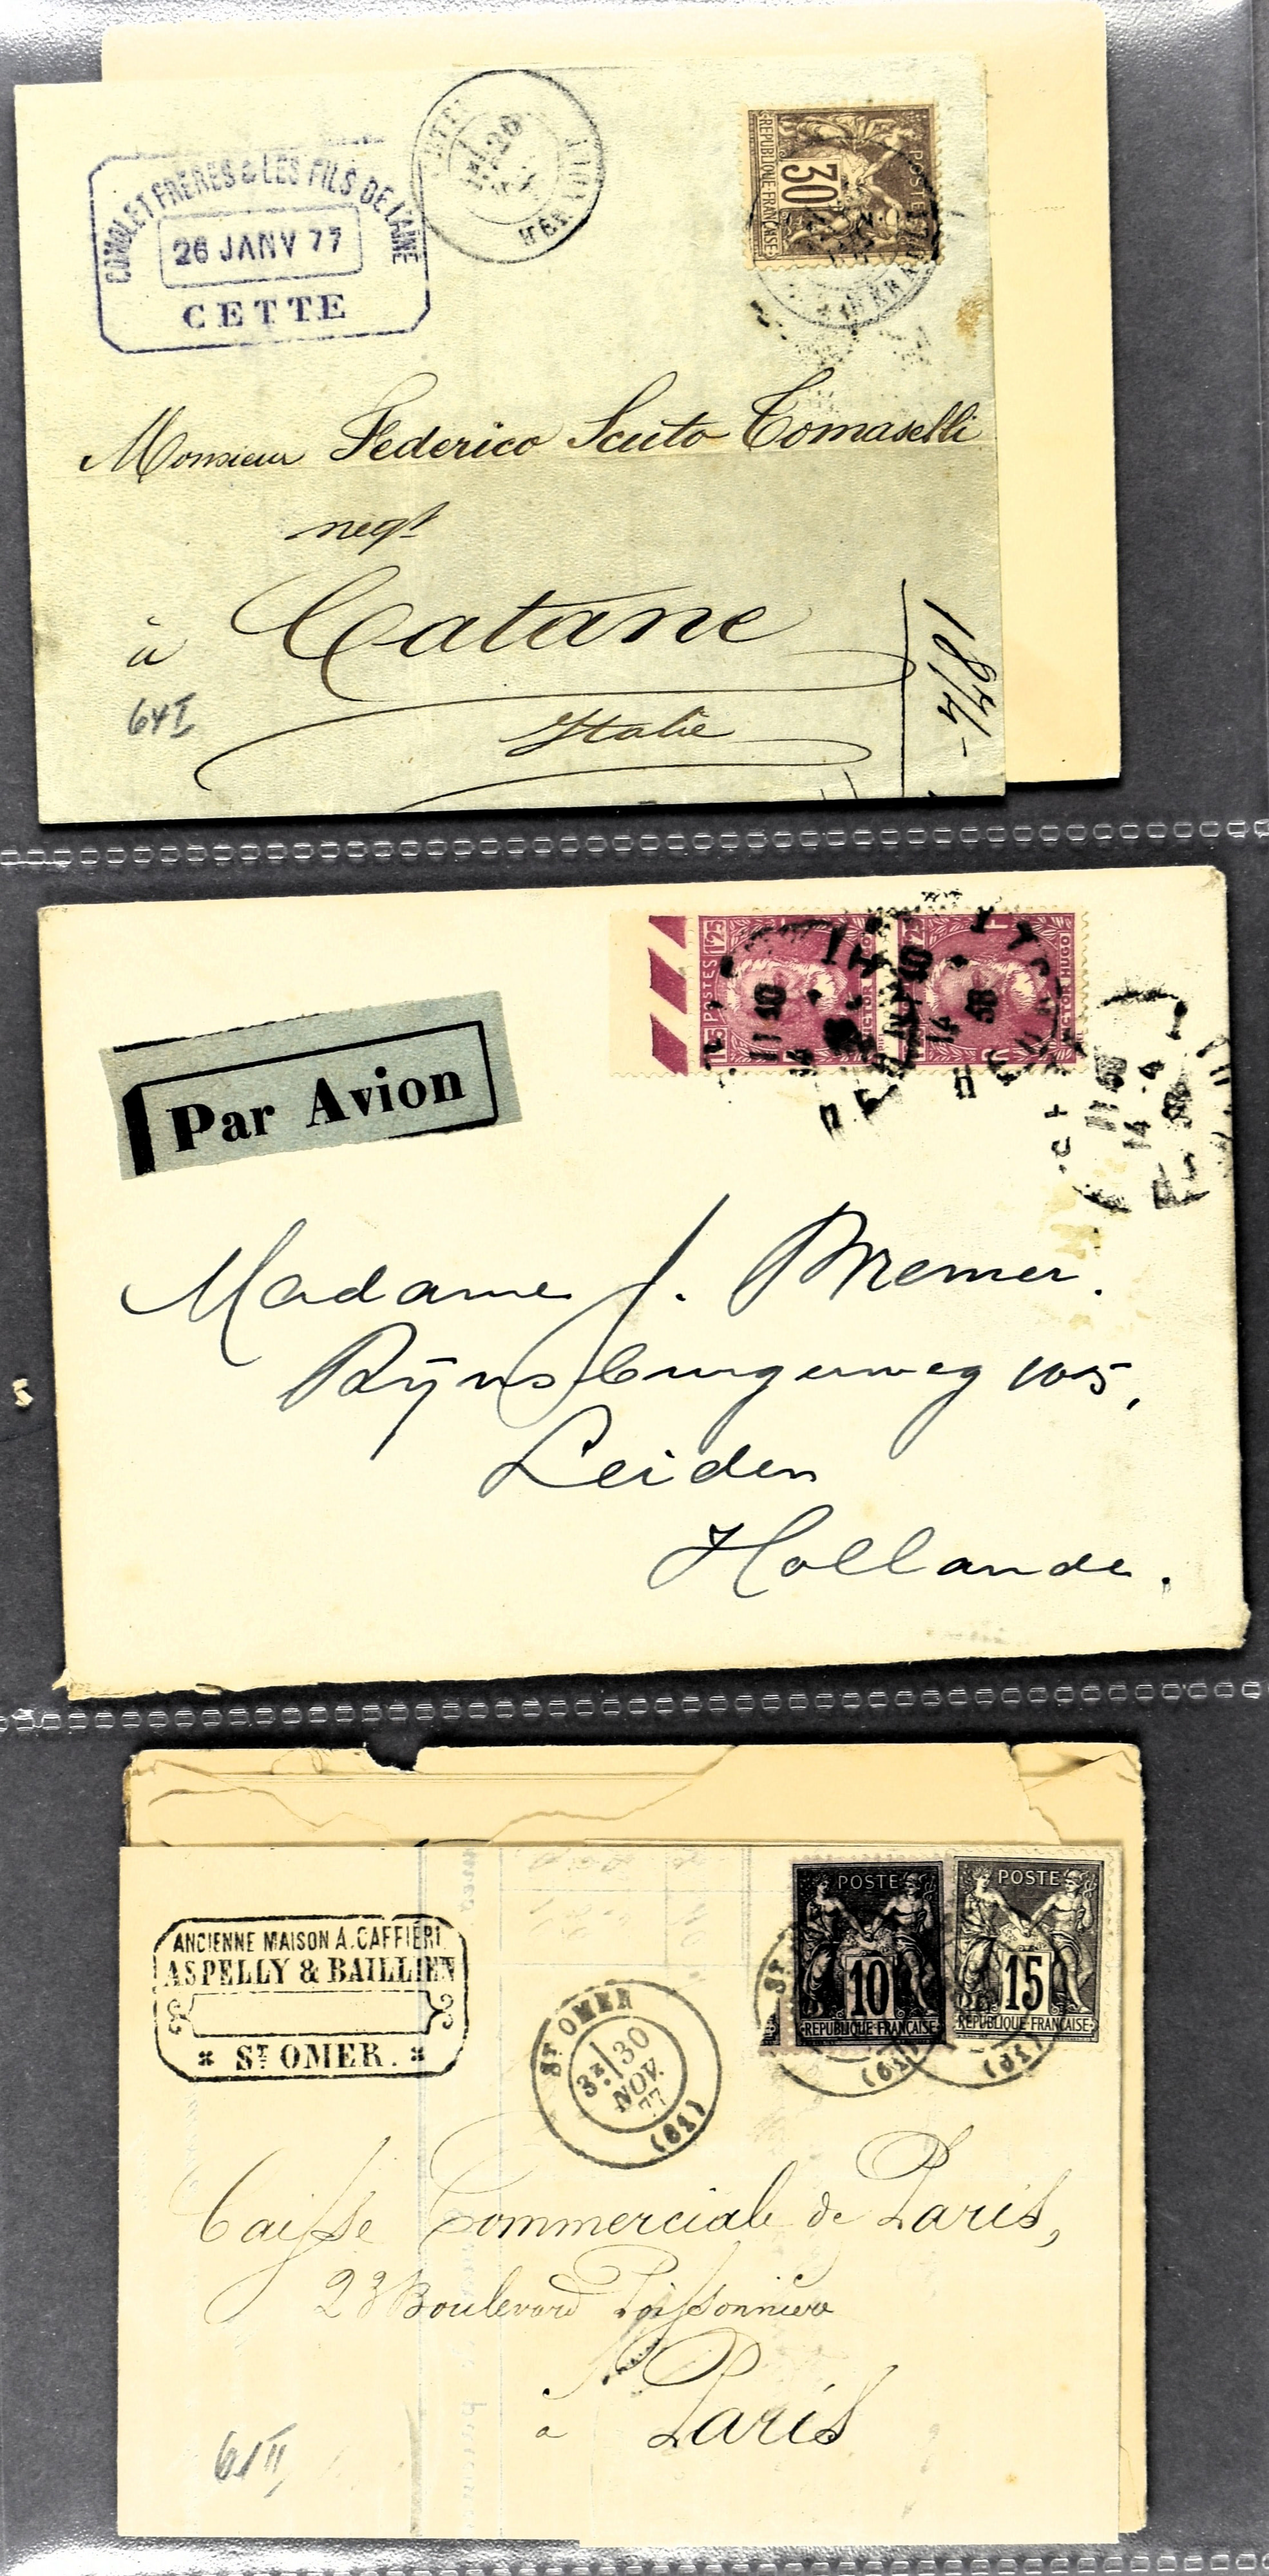 COMOLET FRERES & LES FILS DE L'AINÉ
26 JANV 77
CETTE
CETTE
26
HERAULT
POSTE
30
REPUBLIQUE FRANÇAISE
Monsieur Federico Scuto Tomaselli
negt
à Catane
Italie
64 I
1874-
POSTES 1F25
VICTOR HUGO
VICTOR HUGO
11 40
14
38
11 40
14
38
14-4
Par Avion
Madame J. Bremer.
Rijnsburgerweg 105,
Leiden
Hollande.
ANCIENNE MAISON A. CAFFIÉRI
ASPELLY & BAILLIEN
ST OMER.
ST OMER
3E 30
NOV.
77
(61)
POSTE
10
REPUBLIQUE FRANÇAISE
POSTE
15
REPUBLIQUE FRANÇAISE
Caisse Commerciale de Paris,
23 Boulevard Poissonnière
à Paris
61 II